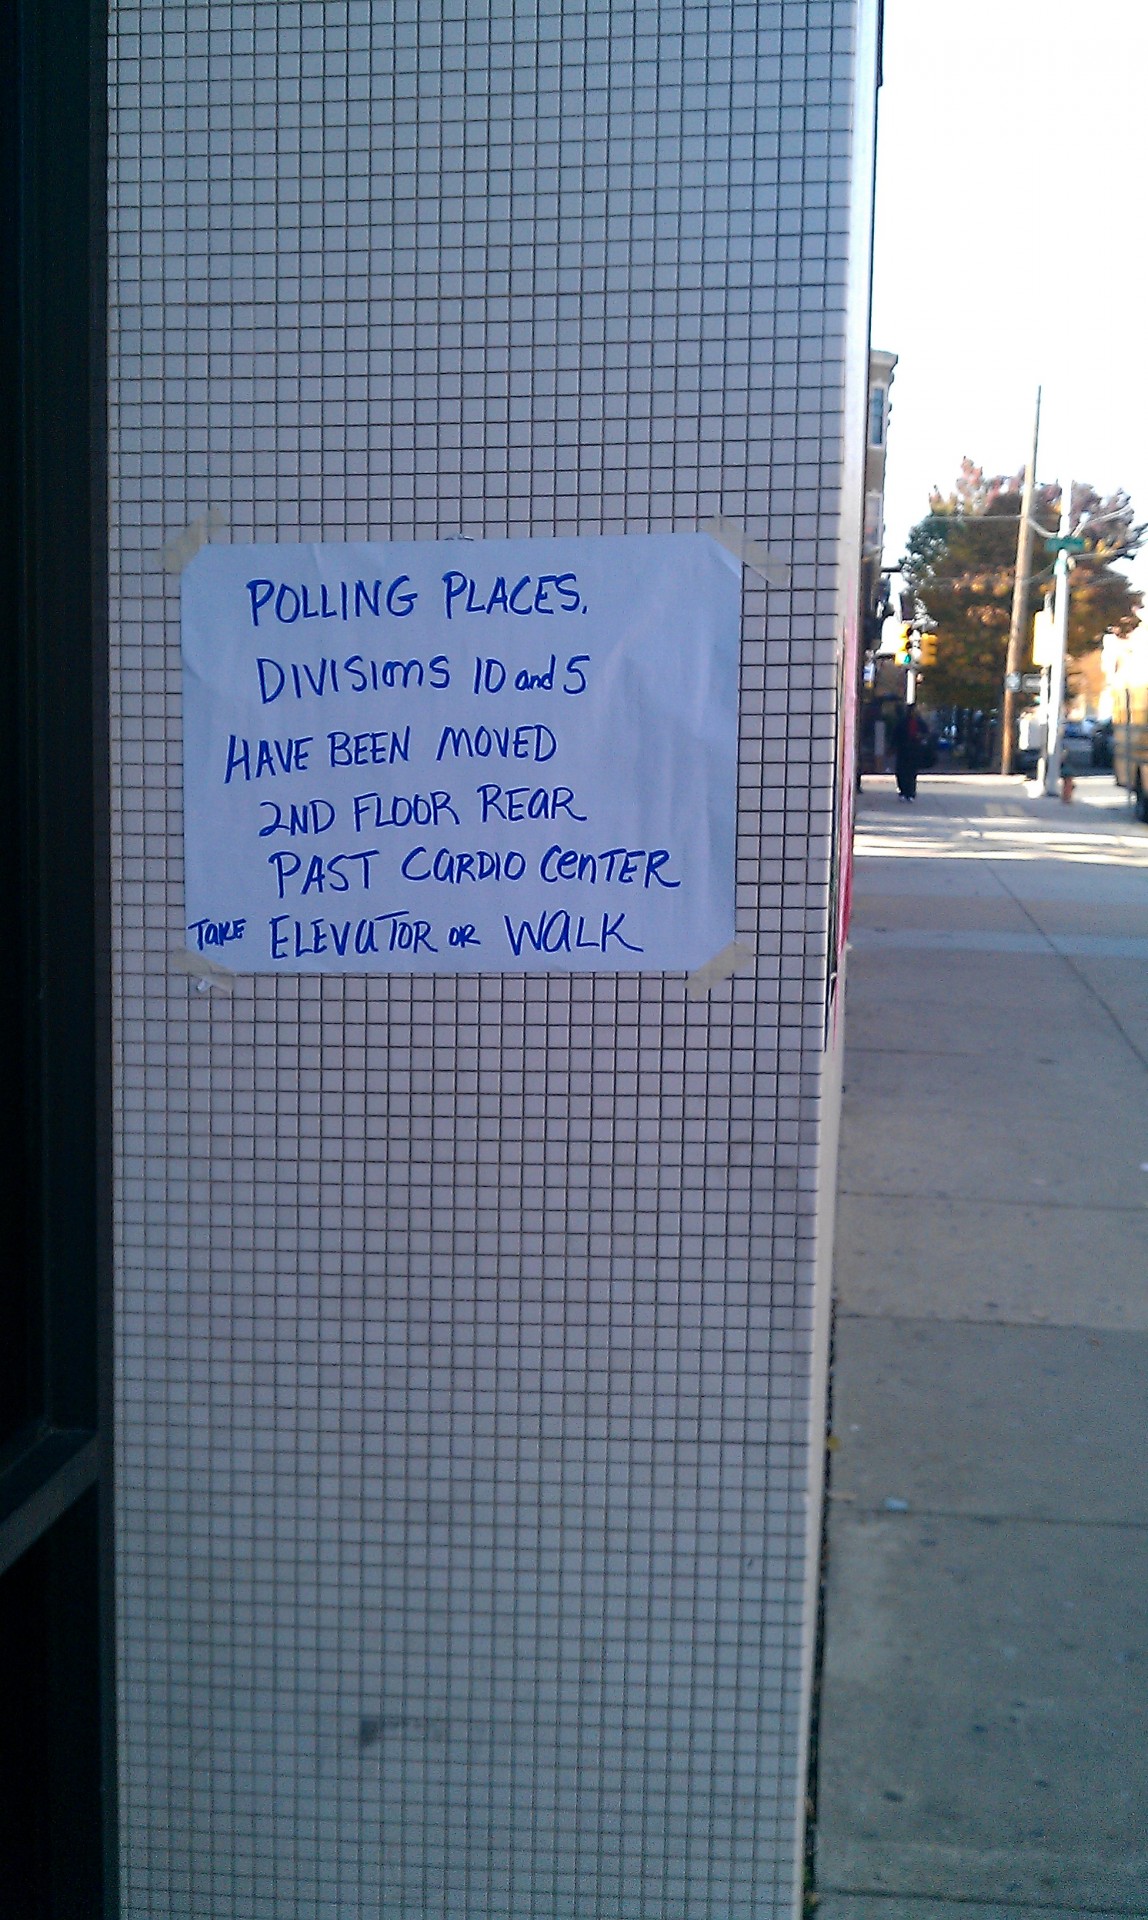 POLLING PLACES.
DIVISIONS 10 and 5
HAVE BEEN MOVED
2ND FLOOR REAR
PAST CARDIO CENTER
TAKE ELEVATOR OR WALK